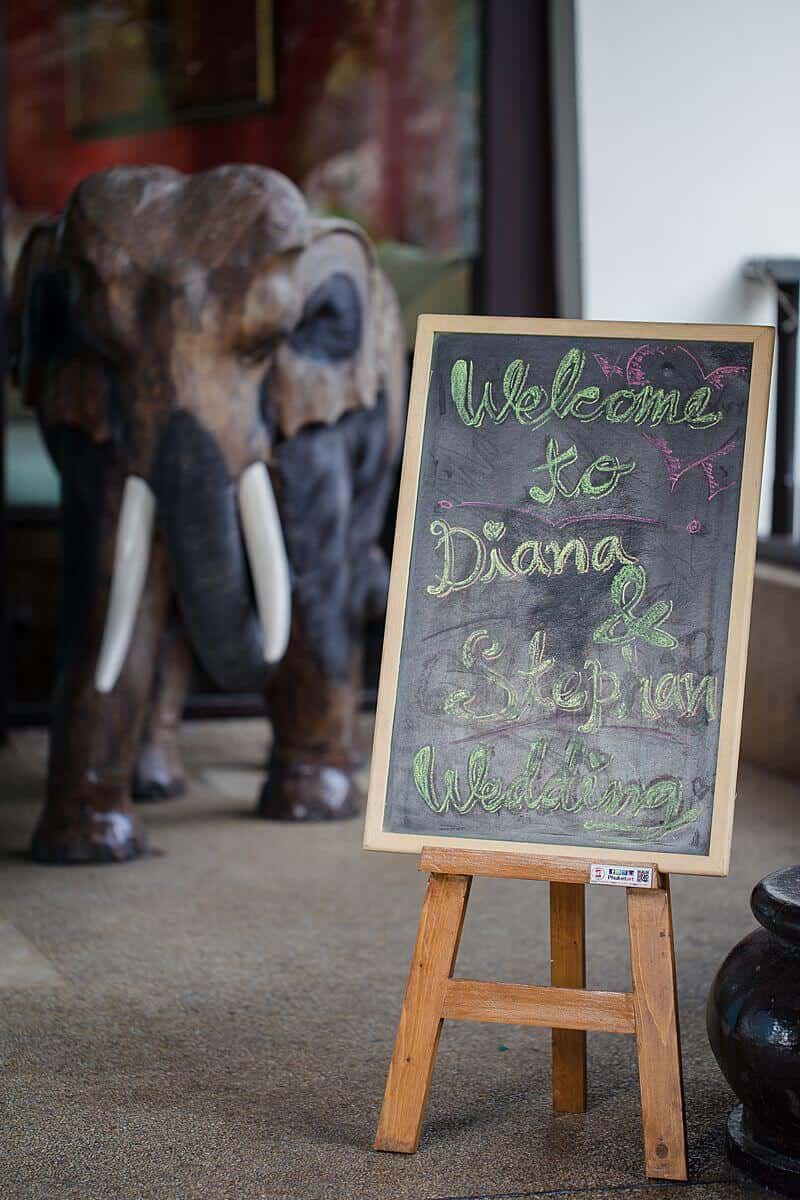 Welcome
to
Diana
&
Stephan
Wedding
Phuketart